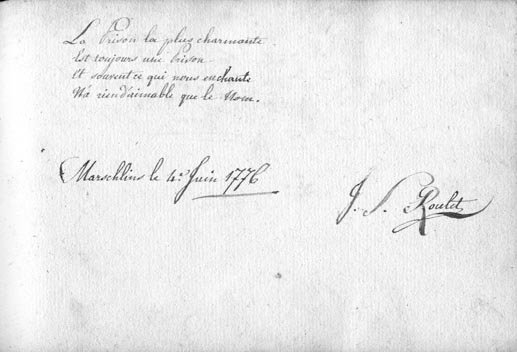 La Prison la plus charmante
Est toujours une Prison
Et souvent ce qui nous enchante
N'a rien d'aimable que le Nom.
Marschlins le 4e Juin 1776
J. S. Roulet